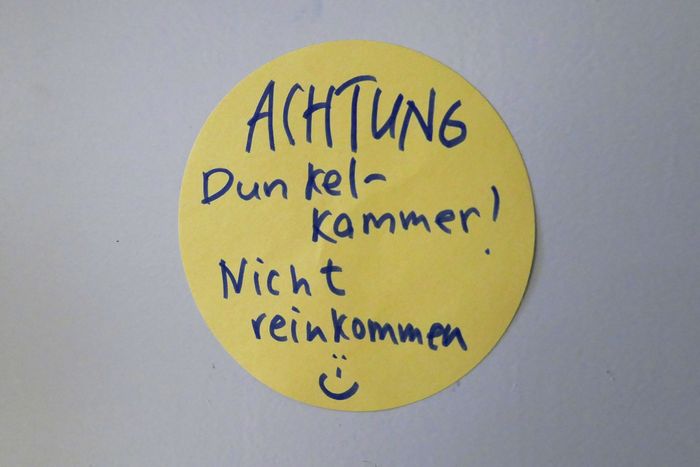 ACHTUNG
Dunkel-
kammer!
Nicht
reinkommen